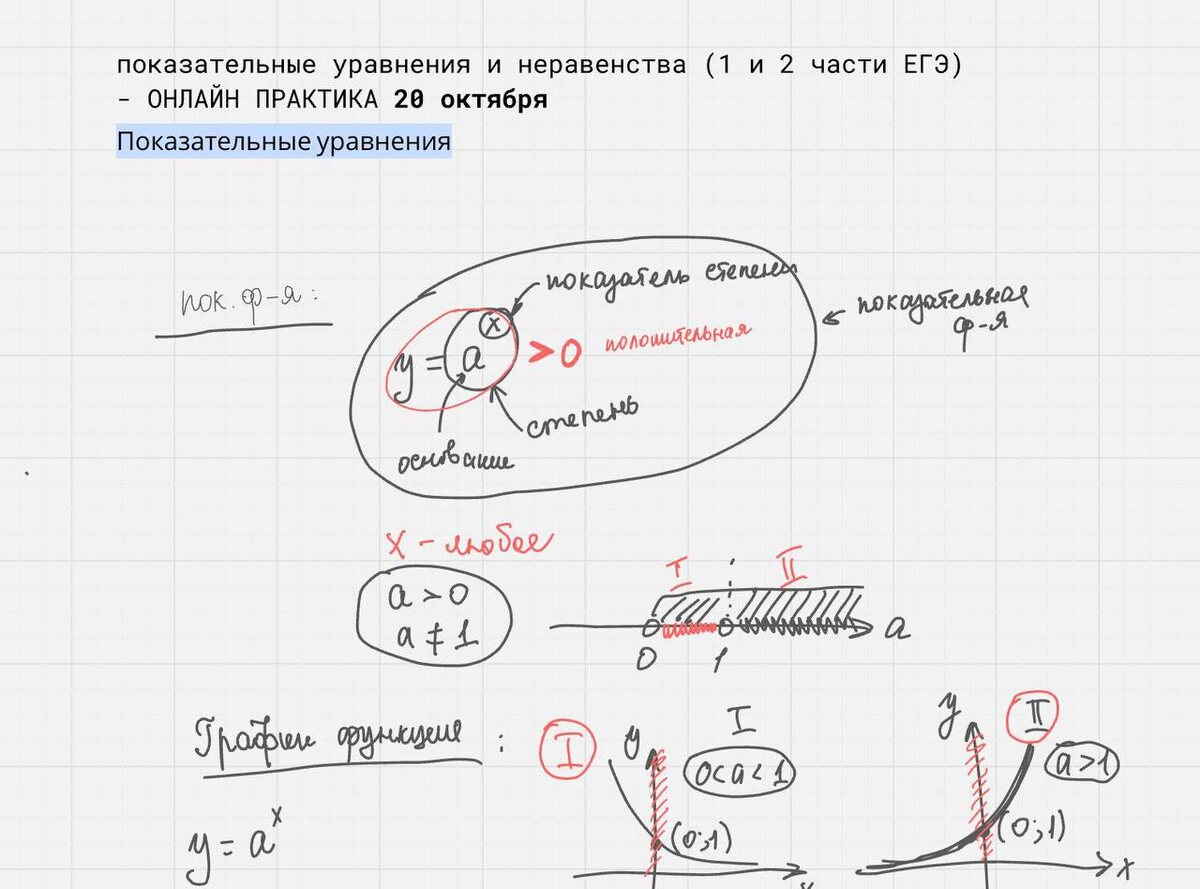 показательные уравнения и неравенства (1 и 2 части ЕГЭ)
- ОНЛАЙН ПРАКТИКА 20 октября
Показательные уравнения
пок. ф-я:
показатель степени
y = a^x > 0 положительная
степень
основание
показательная
ф-я
x - любое
a > 0
a ≠ 1
I II
0 1 a
График функции :
y = a^x
I
y I
0 < a < 1
(0;1)
x
y II
a > 1
(0;1)
x